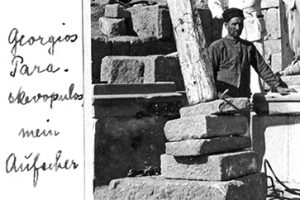 Georgios
Para-
skevopulos
mein
Aufseher